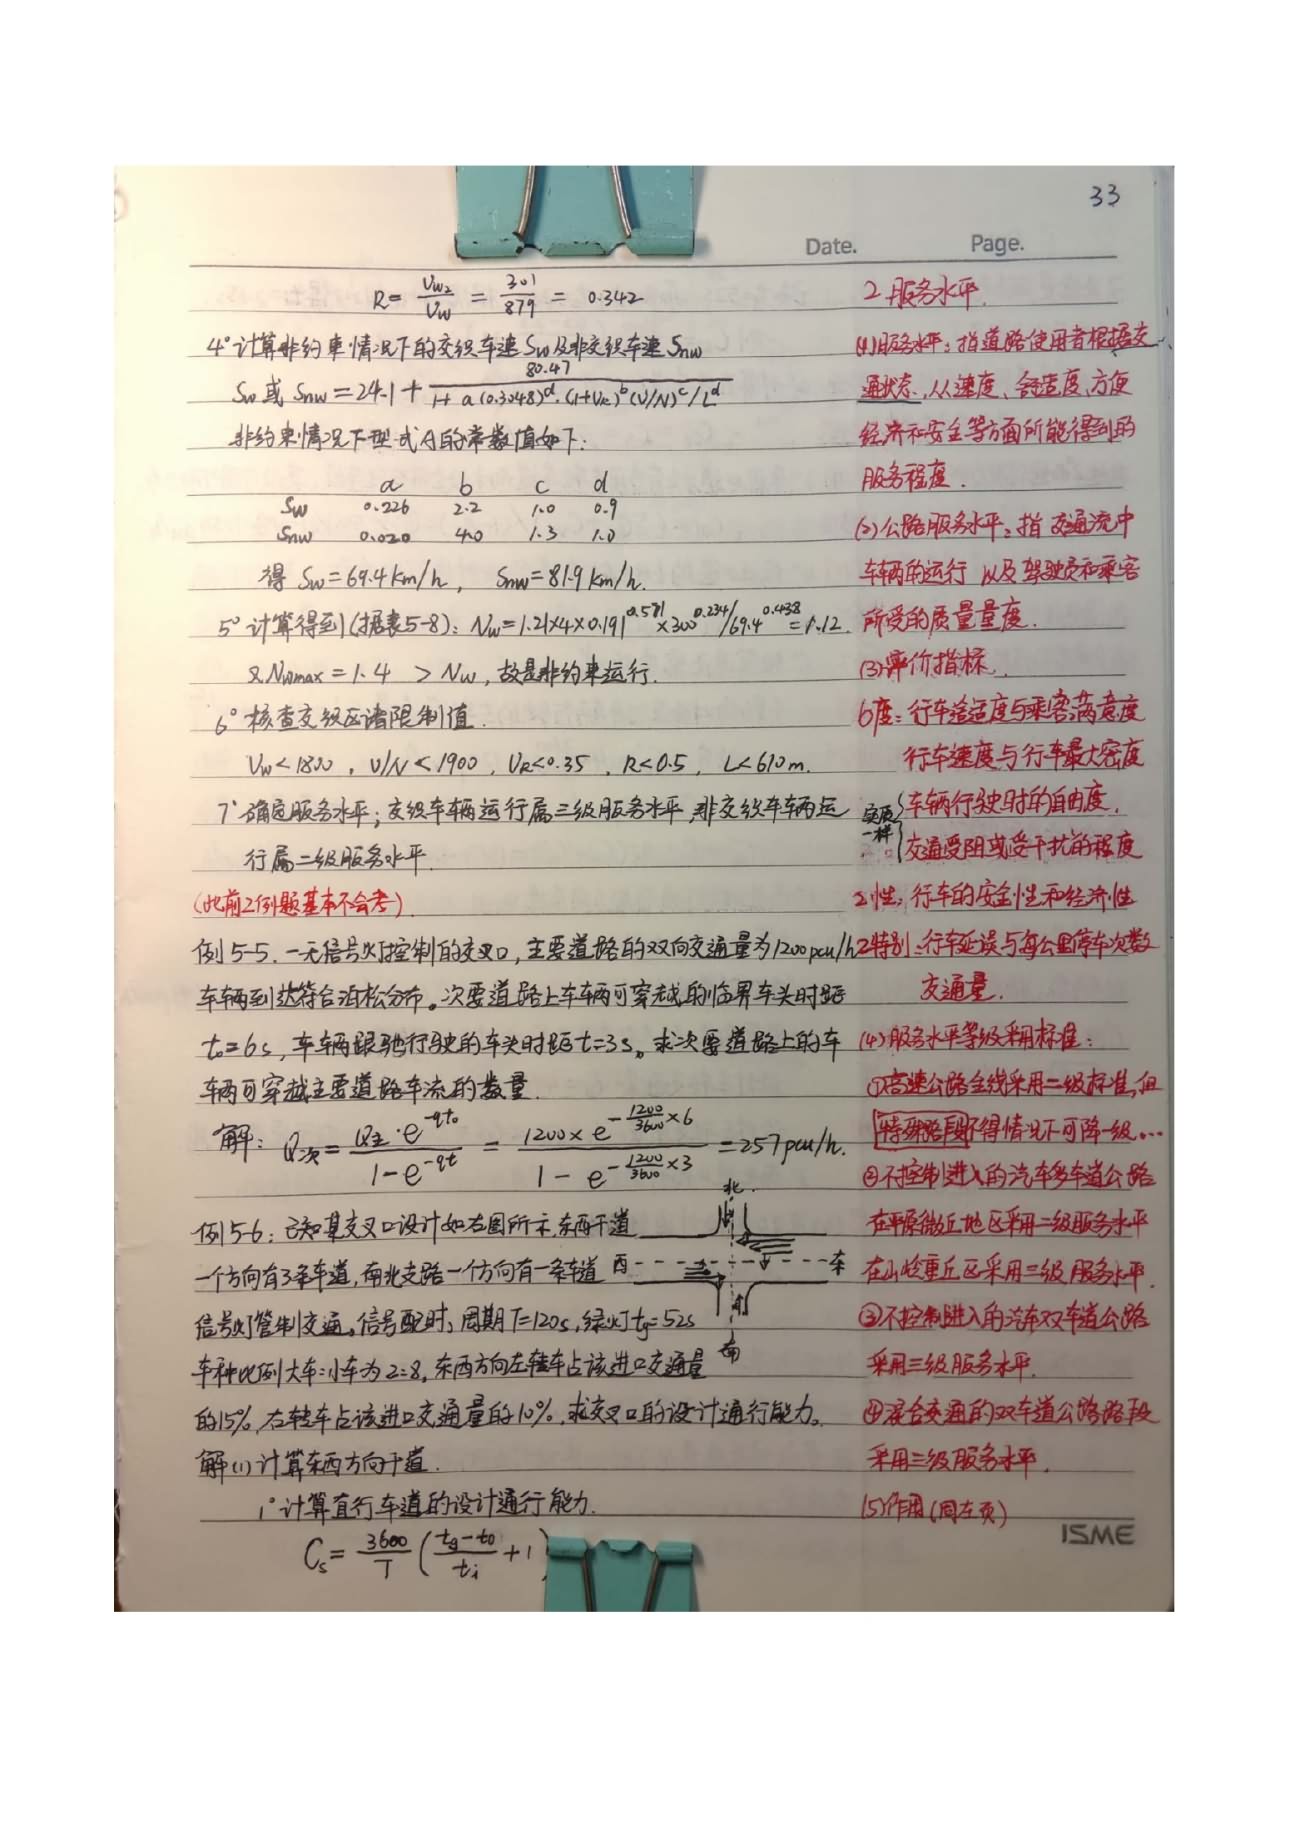 33
Date. Page.
R = Vw₂/Vw = 301/879 = 0.342
4° 计算非约束情况下的交织车速Sw及非交织车速Snw
Sw 或 Snw = 24.1 + 80.47/(1+a(0.3048)^d·(1+VR)^b(V/N)^c/L^d)
非约束情况下型式A的常数值如下:
a b c d
Sw 0.226 2.2 1.0 0.9
Snw 0.020 4.0 1.3 1.0
得 Sw=69.4km/h, Snw=81.9km/h.
5° 计算得到(据表5-8): Nw=1.21×4×0.191^0.571×300^0.234/69.4^0.438=1.12.
又Nwmax=1.4 > Nw, 故是非约束运行.
6° 核查交织区诸限制值.
Vw<1800, V/N<1900, VR<0.35, R<0.5, L<610m.
7° 确定服务水平; 交织车辆运行属三级服务水平, 非交织车车辆运
行属二级服务水平.
(此前2例题基本不会考)
例5-5. 一无信号灯控制的交叉口, 主要道路的双向交通量为1200pcu/h
车辆到达符合泊松分布。次要道路上车辆可穿越的临界车头时距
t₀=6s, 车辆跟驰行驶的车头时距t=3s。求次要道路上的车
辆可穿越主要道路车流的数量.
解: Q次= Q主·e^-qt₀/(1-e^-qt) = 1200×e^(-1200/3600×6)/(1-e^(-1200/3600×3)) =257pcu/h.
例5-6: 已知某交叉口设计如右图所示, 东西干道
一个方向有3条车道, 南北支路一个方向有一条车道
信号灯管制交通。信号配时: 周期T=120s, 绿灯tg=52s
车种比例大车:小车为2:8, 东西方向左转车占该进口交通量
的15%, 右转车占该进口交通量的10%. 求交叉口的设计通行能力。
解(1)计算东西方向干道.
1° 计算直行车道的设计通行能力.
Cs= 3600/T ( (tg-t₀)/ti +1 )
北
西
东
南
2. 服务水平.
(1)服务水平: 指道路使用者根据交
通状态, 从速度、舒适度、方便
经济和安全等方面所能得到的
服务程度.
(2)公路服务水平: 指交通流中
车辆的运行以及驾驶员和乘客
所受的质量量度.
(3)评价指标.
6度: 行车舒适度与乘客满意度
行车速度与行车最大密度
实质一样
车辆行驶时的自由度.
交通受阻或受干扰的程度
2性: 行车的安全性和经济性
2特别: 行车延误与每公里停车次数
交通量.
(4)服务水平等级采用标准:
①高速公路全线采用二级标准, 但
特殊路段不得情况下可降一级…
②不控制进入的汽车多车道公路
在平原微丘地区采用二级服务水平
在山岭重丘区采用三级服务水平.
③不控制进入的汽车双车道公路
采用三级服务水平.
④混合交通的双车道公路路段
采用三级服务水平.
(5)作用(同左页)
ISME